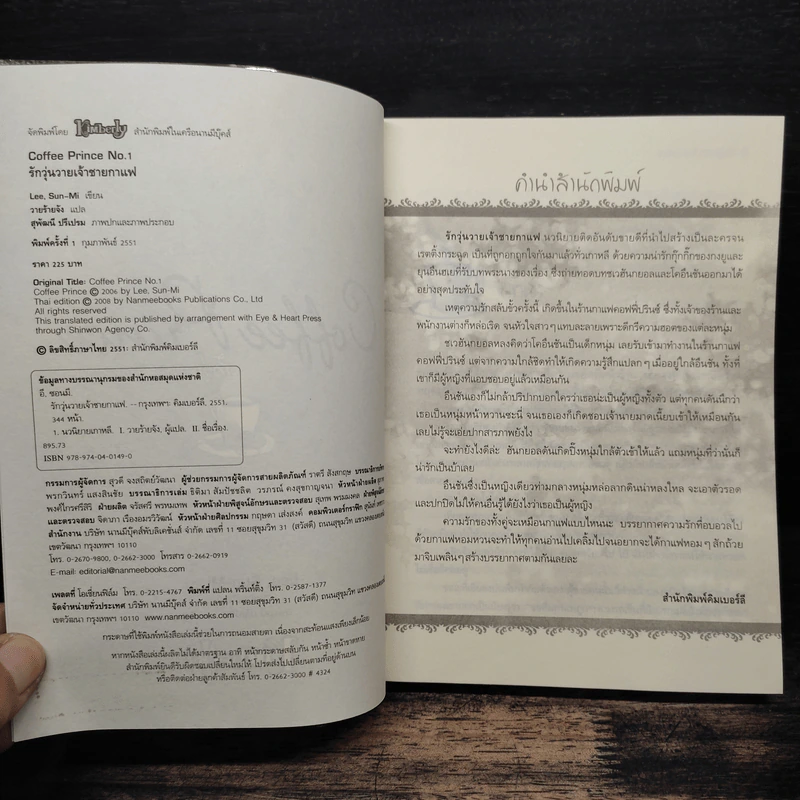 จัดพิมพ์โดย Kimberly สำนักพิมพ์ในเครือนานมีบุ๊คส์
Coffee Prince No.1
รักวุ่นวายเจ้าชายกาแฟ
Lee, Sun-Mi เขียน
วายร้ายจัง แปล
สุพัฒนี ปรีเปรม ภาพปกและภาพประกอบ
พิมพ์ครั้งที่ 1 กุมภาพันธ์ 2551
ราคา 225 บาท
Original Title: Coffee Prince No.1
Coffee Prince © 2006 by Lee, Sun-Mi
Thai edition © 2008 by Nanmeebooks Publications Co., Ltd
All rights reserved
This translated edition is published by arrangement with Eye & Heart Press
through Shinwon Agency Co.
© ลิขสิทธิ์ภาษาไทย 2551: สำนักพิมพ์คิมเบอร์ลี
ข้อมูลทางบรรณานุกรมของสำนักหอสมุดแห่งชาติ
อี, ซอนมี.
รักวุ่นวายเจ้าชายกาแฟ. -- กรุงเทพฯ: คิมเบอร์ลี, 2551.
344 หน้า.
1. นวนิยายเกาหลี. I. วายร้ายจัง, ผู้แปล. II. ชื่อเรื่อง.
895.73
ISBN 978-974-04-0149-0
กรรมการผู้จัดการ สุวดี จงสถิตย์วัฒนา ผู้ช่วยกรรมการผู้จัดการสายผลิตภัณฑ์ ราตรี สังสกฤษ
พรกวินทร์ แสงสินชัย บรรณาธิการเล่ม ธิติมา สัมปัชชลิต วรภรณ์ คงสุขกาญจนา
พงศ์ไกรศรีสิริ ฝ่ายผลิต จรัสศรี พรหมเทพ หัวหน้าฝ่ายพิสูจน์อักษรและตรวจสอบ สุเทพ พรมมงคล
และตรวจสอบ จิตเภา เรืองอมรวิวัฒน์ หัวหน้าฝ่ายศิลปกรรม กฤษดา เส่งสงค์ คอมพิวเตอร์กราฟิก
สำนักงาน บริษัท นานมีบุ๊คส์พับลิเคชันส์ จำกัด เลขที่ 11 ซอยสุขุมวิท 31 (สวัสดี) ถนนสุขุมวิท
เขตวัฒนา กรุงเทพฯ 10110
โทร. 0-2670-9800, 0-2662-3000 โทรสาร 0-2662-0919
E-mail: editorial@nanmeebooks.com
เพลตที่ โอเชี่ยนฟิล์ม โทร. 0-2215-4767 พิมพ์ที่ แปลน พริ้นท์ติ้ง โทร. 0-2587-1377
จัดจำหน่ายทั่วประเทศ บริษัท นานมีบุ๊คส์ จำกัด เลขที่ 11 ซอยสุขุมวิท 31 (สวัสดี) ถนนสุขุมวิท
เขตวัฒนา กรุงเทพฯ 10110 www.nanmeebooks.com
กระดาษที่ใช้พิมพ์หนังสือเล่มนี้ช่วยในการถนอมสายตา เนื่องจากสะท้อนแสงเพียงเล็กน้อย
หากหนังสือเล่มนี้ผลิตไม่ได้มาตรฐาน อาทิ หน้ากระดาษสลับกัน หน้าซ้ำ หน้าขาดหาย
สำนักพิมพ์ยินดีรับผิดชอบเปลี่ยนใหม่ให้ โปรดส่งไปเปลี่ยนตามที่อยู่ด้านบน
หรือติดต่อฝ่ายลูกค้าสัมพันธ์ โทร. 0-2662-3000 # 4324
คำนำสำนักพิมพ์
รักวุ่นวายเจ้าชายกาแฟ นวนิยายติดอันดับขายดีที่นำไปสร้างเป็นละครจน
เรตติ้งกระฉูด เป็นที่ถูกอกถูกใจกันมาแล้วทั่วเกาหลี ด้วยความน่ารักกุ๊กกิ๊กของกงยูและ
ยุนอึนเฮที่รับบทพระนางของเรื่อง ซึ่งถ่ายทอดบทชเวฮันกยอลและโคอึนชันออกมาได้
อย่างสุดประทับใจ
เหตุความรักสลับขั้วครั้งนี้ เกิดขึ้นในร้านกาแฟคอฟฟี่ปรินซ์ ซึ่งทั้งเจ้าของร้านและ
พนักงานต่างก็หล่อเริ่ด จนทำใจสาวๆแทบละลายเพราะดีกรีความฮอตของแต่ละหนุ่ม
ชเวฮันกยอลหลงคิดว่าโคอึนชันเป็นเด็กหนุ่ม เลยรับเข้ามาทำงานในร้านกาแฟ
คอฟฟี่ปรินซ์ แต่จากความใกล้ชิดทำให้เกิดความรู้สึกแปลกๆเมื่ออยู่ใกล้อึนชัน ทั้งที่
เขาก็มีผู้หญิงที่แอบชอบอยู่แล้วเหมือนกัน
อึนชันเองก็ไม่กล้าปริปากบอกใครว่าเธอน่ะเป็นผู้หญิงทั้งตัว แต่ทุกคนดันนึกว่า
เธอเป็นหนุ่มหน้าหวานซะนี่ จนเธอเองก็เกิดชอบเจ้านายมาดเนี้ยบเข้าให้เหมือนกัน
เลยไม่รู้จะเอ่ยปากสารภาพยังไง
จะทำยังไงดีล่ะ ฮันกยอลดันเกิดปิ๊งหนุ่มใกล้ตัวเข้าให้แล้ว แถมหนุ่มที่ว่านั้นก็
น่ารักเป็นบ้าเลย
อึนชันซึ่งเป็นหญิงเดียวท่ามกลางหนุ่มหล่อลากดินน่าหลงใหล จะเอาตัวรอด
และปกปิดไม่ให้คนอื่นรู้ได้ยังไงว่าเธอเป็นผู้หญิง
ความรักของทั้งคู่จะเหมือนกาแฟแบบไหนนะ บรรยากาศความรักที่อบอวลไป
ด้วยกาแฟหอมหวานจะทำให้ทุกคนอ่านไปเคลิ้มไปจนอยากจะได้กาแฟหอมๆสักถ้วย
มาจิบเพลินๆสร้างบรรยากาศตามกันเลยละ
สำนักพิมพ์คิมเบอร์ลี